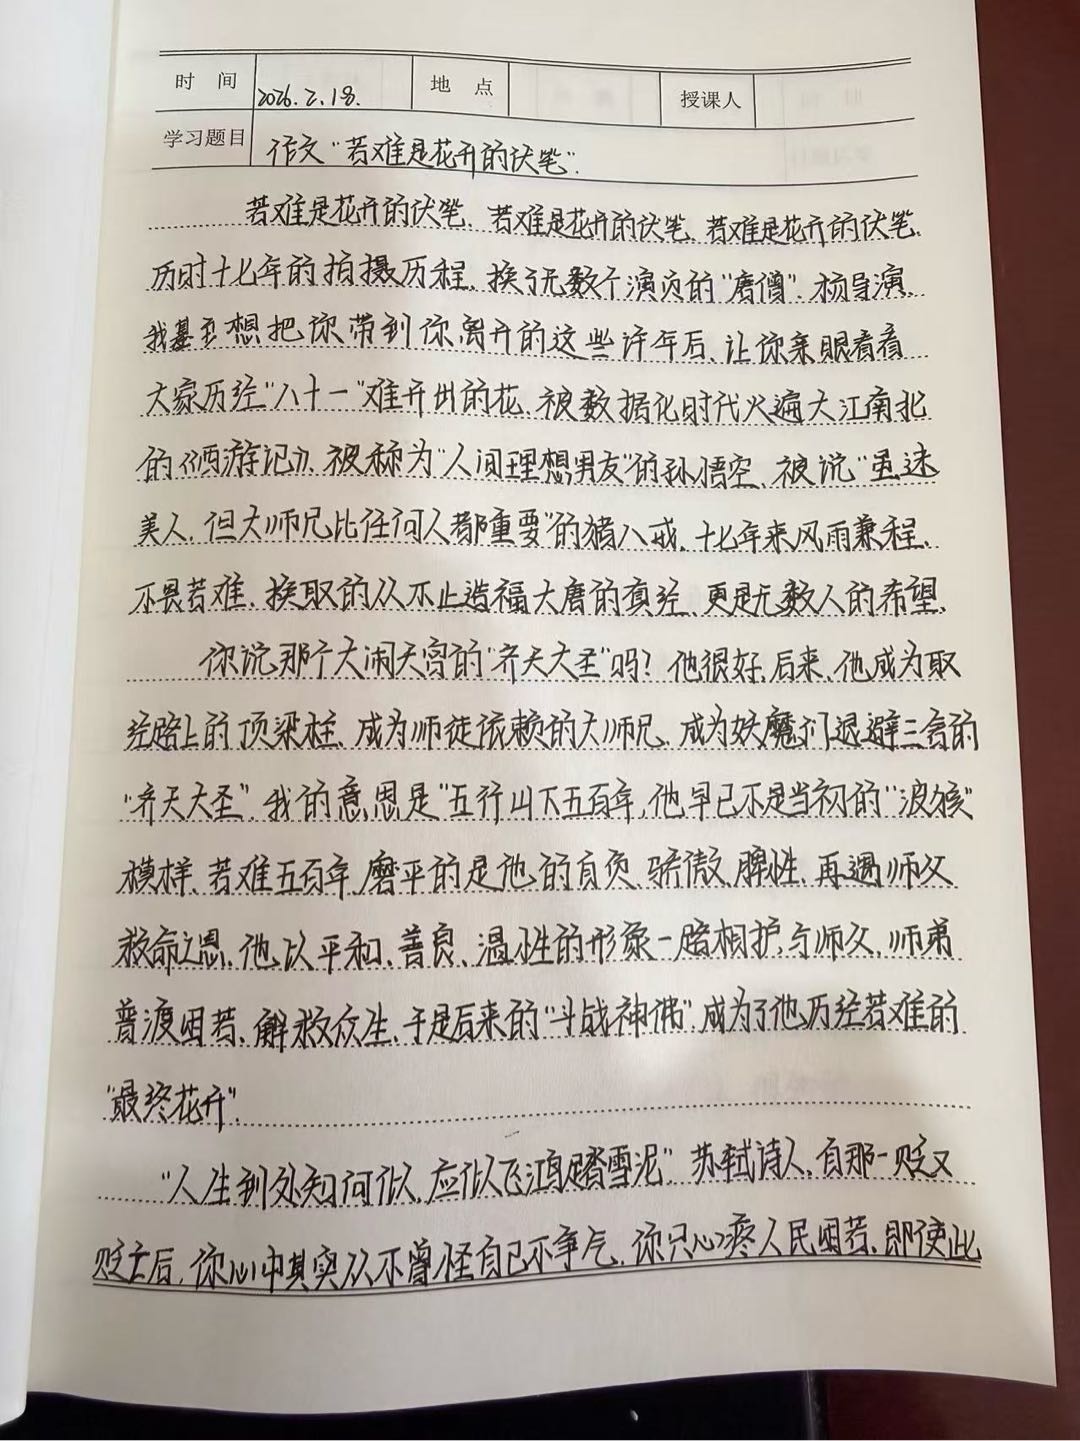 时 间 2026.2.18. 地 点 授课人
学习题目 作文“苦难是花开的伏笔”.
苦难是花开的伏笔、苦难是花开的伏笔、苦难是花开的伏笔.
历时十七年的拍摄历程、换了无数个演员的“唐僧”.杨导演、
我甚至想把你带到你离开的这些许年后、让你亲眼看看
大家历经“八十一”难开出的花、被数据化时代火遍大江南北
的《西游记》、被称为“人间理想男友”的孙悟空、被说“虽迷
美人、但大师兄比任何人都重要”的猪八戒、十七年来风雨兼程、
不畏苦难、换取的从不止造福大唐的真经、更是无数人的希望、
你说那个大闹天宫的“齐天大圣”吗？他很好、后来、他成为取
经路上的顶梁柱、成为师徒依赖的大师兄、成为妖魔们退避三舍的
“齐天大圣”.我的意思是“五行山下五百年,他早已不是当初的“泼猴”
模样、苦难五百年,磨平的是他的自负、骄傲、脾性、再遇师父
救命之恩、他以平和、善良、温性的形象一路相护,与师父、师弟
普渡困苦、解救众生、于是后来的“斗战神佛”,成为了他历经苦难的
“最终花开”.
“人生到处知何似,应似飞鸿踏雪泥”苏轼诗人、自那一贬又
贬之后、你心中其实从不曾怪自己不争气、你只心疼人民困苦、即使此